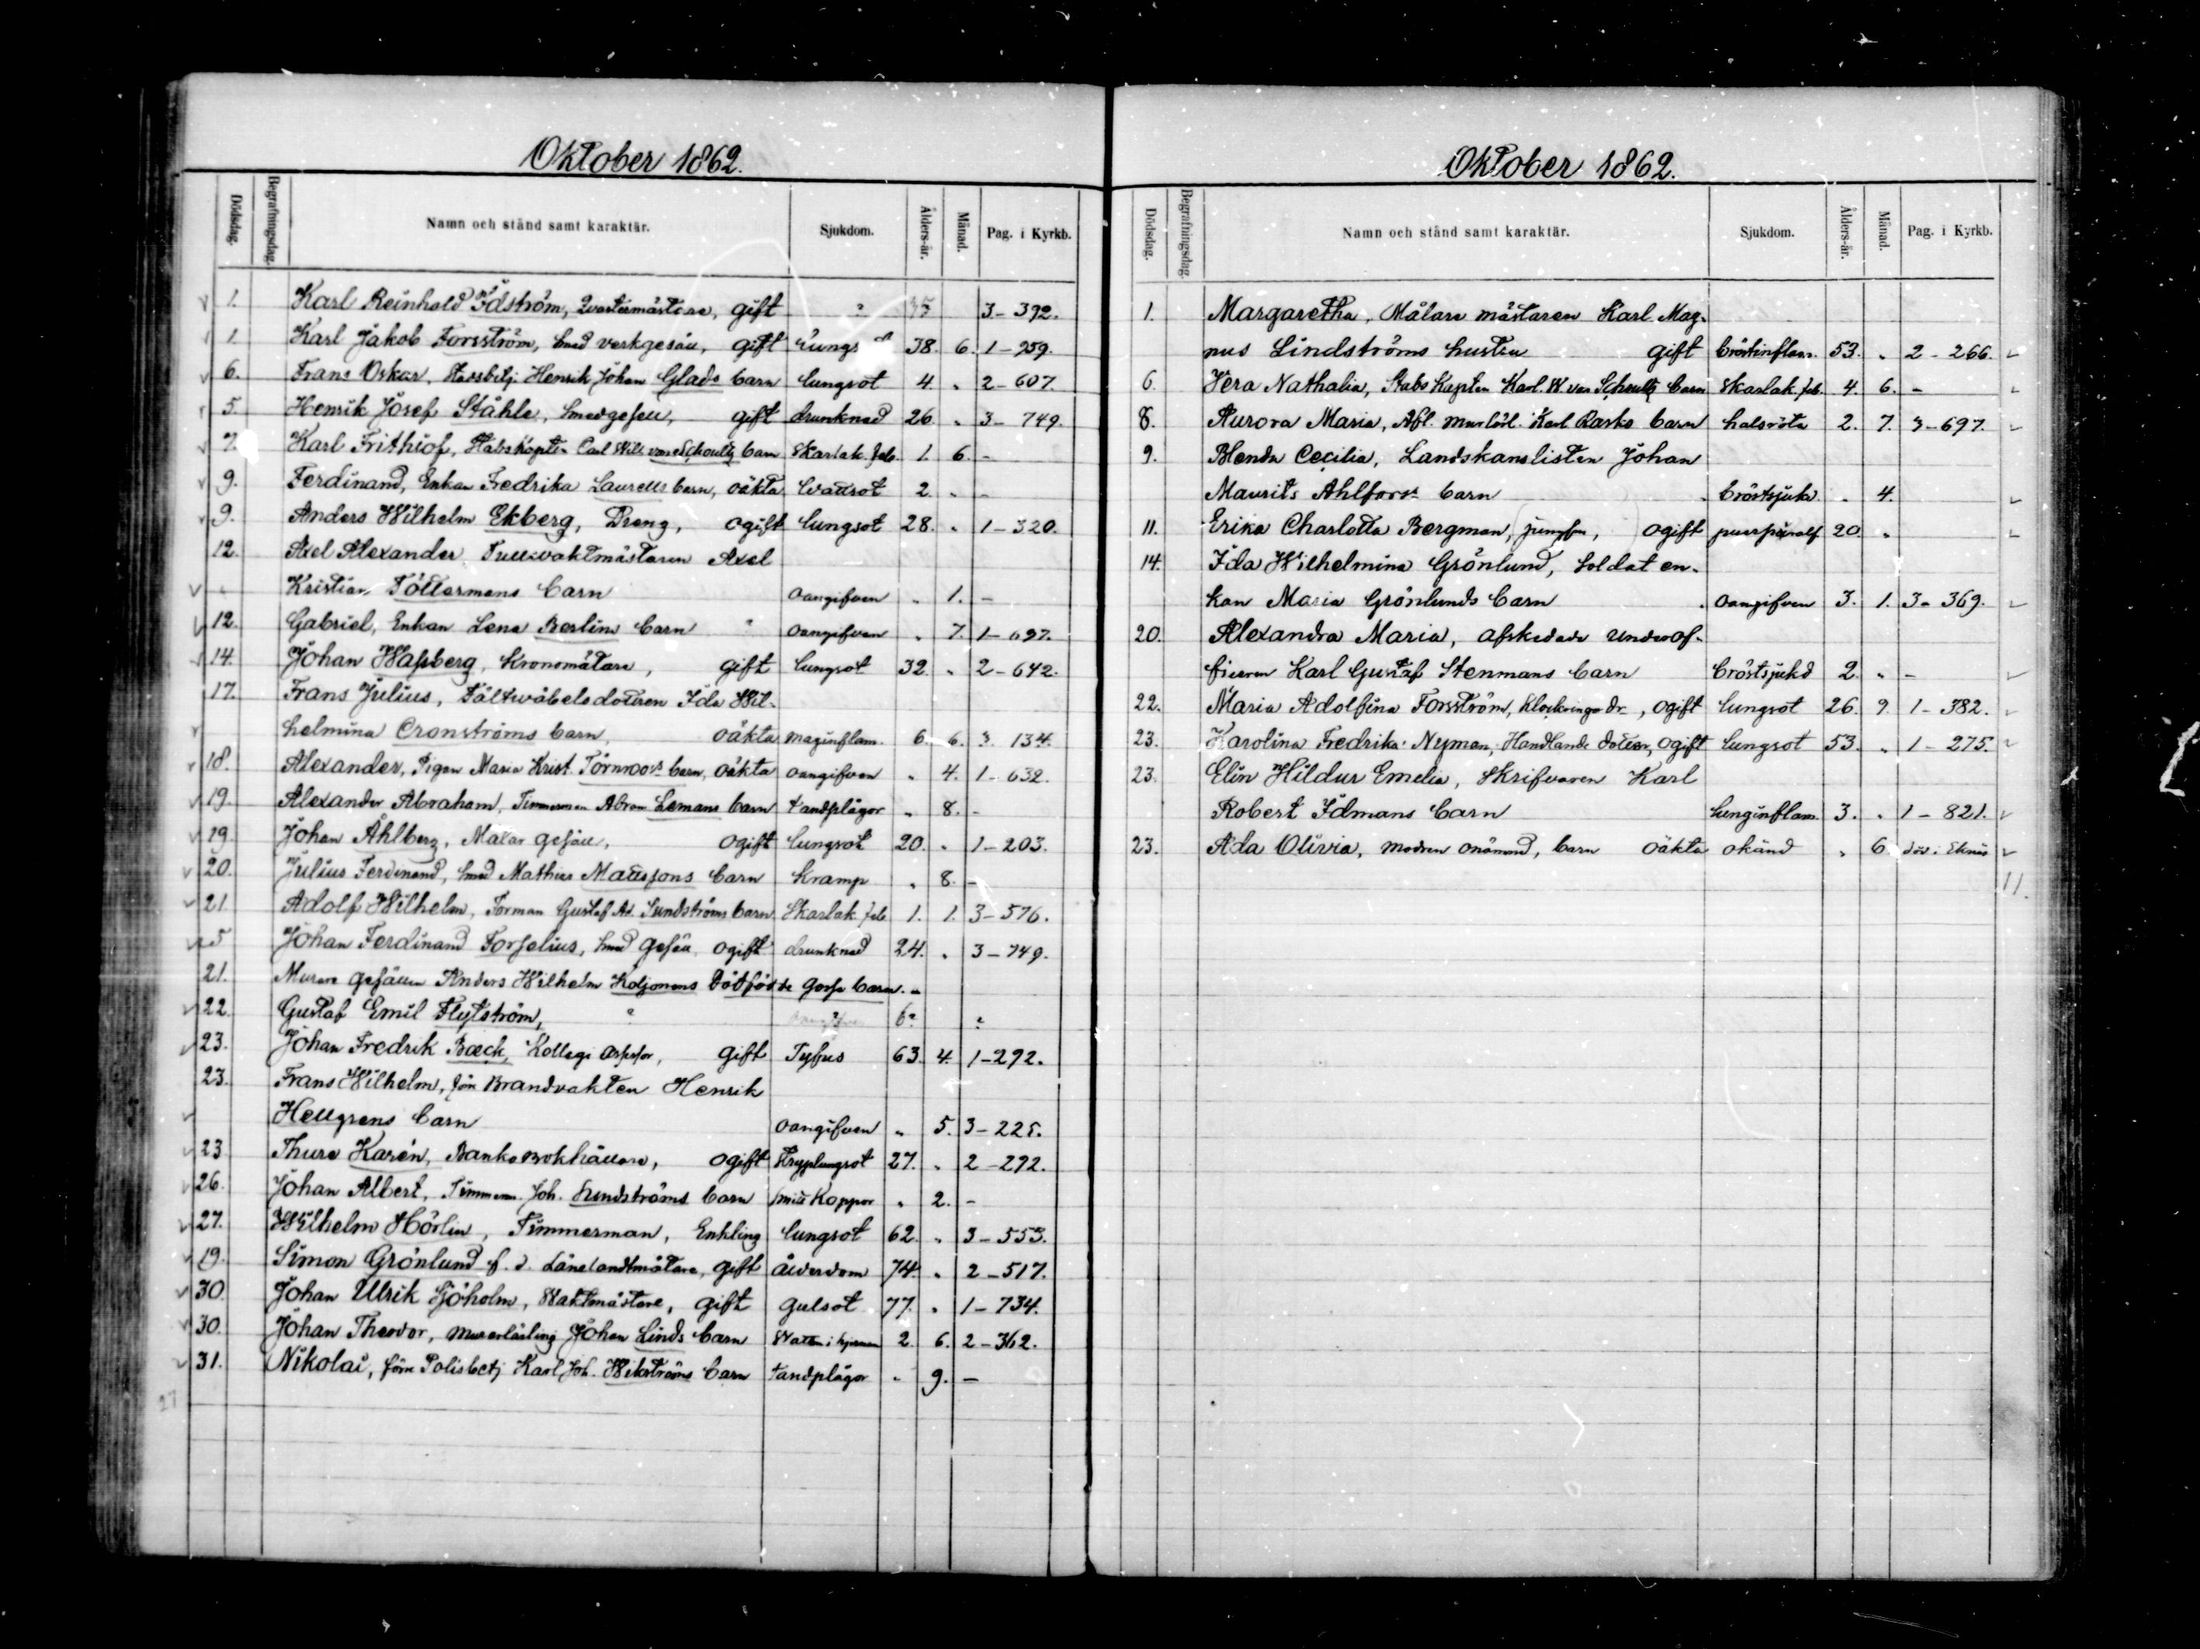 Oktober 1862.
Dödsdag. Begrafningsdag. Namn och stånd samt karaktär. Sjukdom. Ålders-år. Månad. Pag. i Kyrkb.
1. Karl Reinhold Idström, gift " 3-392.
1. Karl Jakob Forsström, Smed verkgesäll, gift 38. 6. 1-259.
6. Frans Oskar, Henrik Johan Glads barn lungsot 4. " 2-607.
5. Henrik Josef Ståhle, Smedgesell, gift drunknad 26. " 3-749.
7. Karl Frithiof, Stabskapten Carl Wilh. von Schoultz barn Skarlak. feb. 1. 6. -
9. Ferdinand, Enkan Fredrika Laurells barn, oäkta 2. " -
9. Anders Wilhelm Ekberg, Dreng, ogift lungsot 28. " 1-320.
12. Axel Alexander Tullvaktmästaren Axel
Kristian Töttermans barn oangifven " 1. -
12. Gabriel, Enkan Lena Berlins barn oangifven " 7. 1-697.
14. Johan Wasberg, Kronomätare, gift lungsot 32. " 2-642.
17. Frans Julius, Fältwäbelsdottren Ida Wil-
helmina Cronströms barn, oäkta maginflam. 6. 6. 3. 134.
18. Alexander, Pigan Maria Krist. Törnroos barn, oäkta oangifven " 4. 1-632.
19. Alexander Abraham, Timmerman Abram Lemans barn tandplågor " 8. -
19. Johan Åhlberg, Målar gesäll, ogift lungsot 20. " 1-203.
20. Julius Ferdinand, Smed Mathias Manssons barn kramp " 8. -
21. Adolf Wilhelm, Forman Gustaf Ad. Sundströms barn Skarlak. feb. 1. 1. 3-576.
5 Johan Ferdinand Forselius, Smed gesäll ogift drunknad 24. " 3-749.
21. Murare gesällen Anders Wilhelm Koljonens dödfödde gosse barn. "
22. Gustaf Emil Flytström, " 6? ?
23. Johan Fredrik Bæck, Kollegi Assessor, gift Tyfus 63. 4. 1-292.
23. Frans Wilhelm, förre Brandvakten Henrik
Hellgrens barn oangifven " 5. 3-225.
23 Thure Karén, Banko bokhållare, ogift 27. " 2-292.
26. Johan Albert, Timmerm. Joh. Sundströms barn Smitt Koppor " 2. -
27. Wilhelm Hörlin, Timmerman, Enkling lungsot 62. " 3-553.
19. Simon Grönlund f. d. Länelandtmätare, gift ålderdom 74. " 2-517.
30 Johan Ulrik Sjöholm, Waktmästare, gift gulsot 77. " 1-734.
30. Johan Theodor, murarlärling Johan Linds barn Watten i hjernan 2. 6. 2-362.
31. Nikolai, förre Polisbetj Karl Joh. Wikströms barn tandplågor " 9. -
27
Oktober 1862.
Dödsdag. Begrafningsdag. Namn och stånd samt karaktär. Sjukdom. Ålders-år. Månad. Pag. i Kyrkb.
1. Margaretha, Målare mästaren Karl Mag-
nus Lindströms hustru gift bröstinflam. 53. " 2-266.
6. Vera Nathalia, Stabs Kapten Karl. W. von Schoultz barn Skarlak. feb. 4. 6. -
8. Aurora Maria, Afl. murlärl. Karl Rasks barn halsröta 2. 7. 3-697.
9. Blenda Cecilia, Landskanslisten Johan
Maurits Ahlfors barn bröstsjuka " 4.
11. Erika Charlotta Bergman, jungfru, ogift 20. "
14. Ida Wilhelmina Grönlund, Soldat en-
kan Maria Grönlunds barn oangifven 3. 1. 3-369.
20. Alexandra Maria, afskedade underof-
ficeren Karl Gustaf Stenmans barn bröstsjukd 2. " -
22. Maria Adolfina Forsström, Klockringare dr, ogift lungsot 26. 9. 1-382.
23. Karolina Fredrika Nyman, Handlande dotter, ogift lungsot 53. " 1-275.
23. Elin Hildur Emelia, Skrifvaren Karl
Robert Idmans barn lunginflam. 3. " 1-821.
23. Ada Olivia, modren onämnd, barn oäkta okänd " 6. död i Eknäs
11.